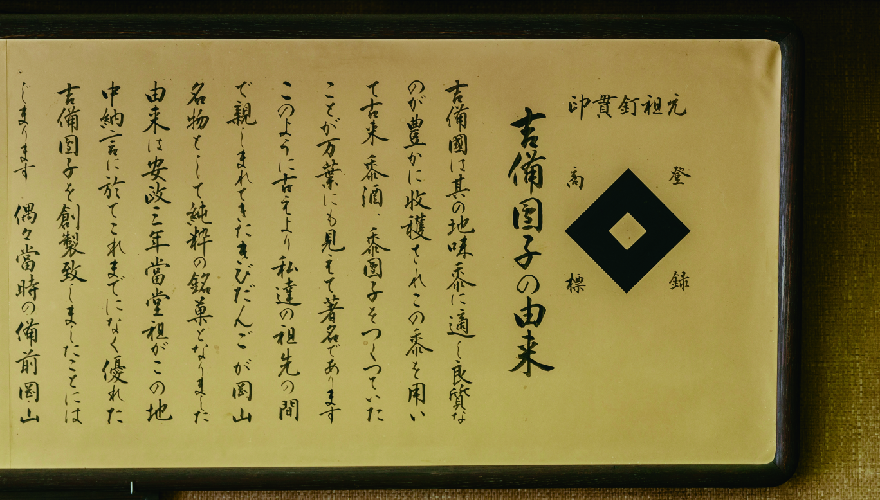 元祖釘貫印
登録
商標
吉備団子の由来
吉備國は其の地味黍に適し良質な
のが豊かに收穫されこの黍を用い
て古来黍酒、黍団子をつくつていた
ことが万葉にも見えて著名であります
このように古えより私達の祖先の間
で親しまれてきたきびだんごが岡山
名物として純粋の銘菓となりました
由来は安政三年當堂祖がこの地
中納言に於てこれまでになく優れた
吉備団子を創製致しましたことには
じまります 偶々當時の備前岡山